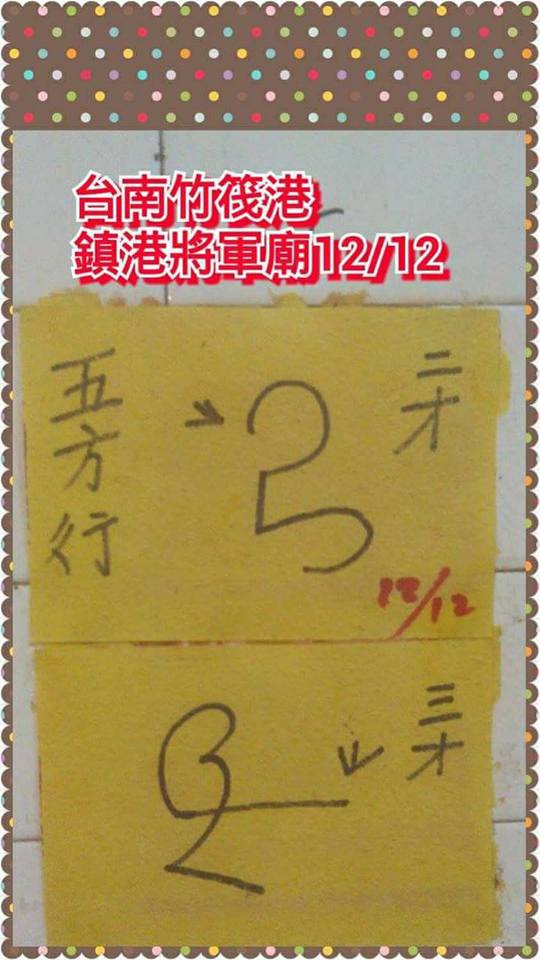 台南竹筏港
鎮港將軍廟12/12
二才
五方行
12/12
三才